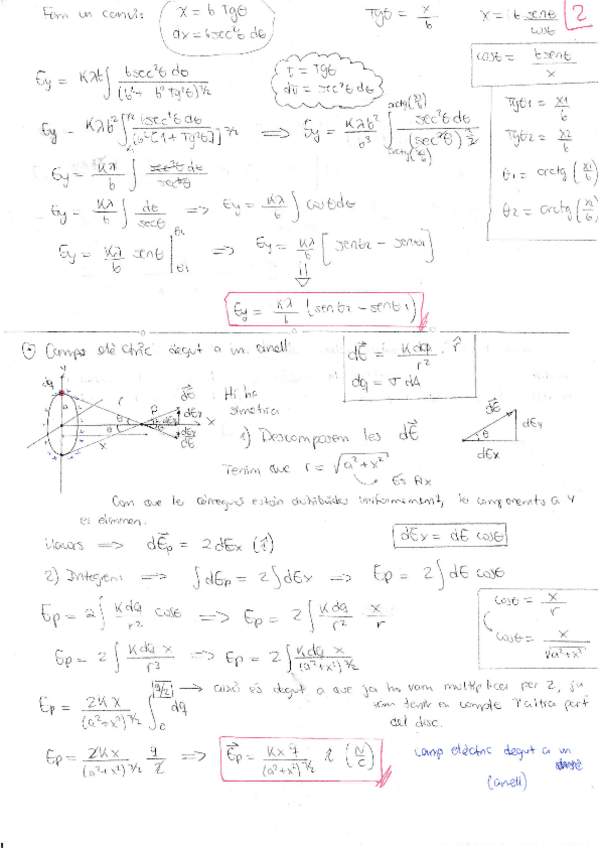 Fem un canvi: x = b Tgθ    Tgθ = x/b    x = b senθ/cosθ    2
dx = b sec²θ dθ
cosθ = b senθ / x
Ey = Kλb ∫ b sec²θ dθ / (b² + b² Tg²θ)^3/2    τ = Tgθ
dτ = sec²θ dθ
Tgθ1 = x1/b
Ey = Kλb² ∫ b sec²θ dθ / [b²(1 + Tg²θ)]^3/2 ⟹ Ey = Kλb²/b³ ∫ sec²θ dθ / (sec²θ)^3/2    Tgθ2 = x2/b
Ey = Kλ/b ∫ sec²θ dθ / sec³θ    θ1 = arctg (x1/b)
Ey = Kλ/b ∫ dθ/secθ ⟹ Ey = Kλ/b ∫ cosθ dθ    θ2 = arctg (x2/b)
Ey = Kλ/b senθ |θ1 θ2 ⟹ Ey = Kλ/b [senθ2 − senθ1]
Ey = Kλ/b (senθ2 − senθ1)
Camp elèctric degut a un anell    dE = K dq / r² · r̂
dq = σ dA
Hi ha
simetria
1) Descomposem les dE
Tenim que r = √(a² + x²)
És Ax
Com que les càrregues estan distribuïdes uniformement, les components a Y
es eliminen.
Llavors ⟹ dEp = 2dEx (î)    dEx = dE cosθ
2) Integrem ⟹ ∫dEp = 2∫dEx ⟹ Ep = 2∫dE cosθ
Ep = 2∫ K dq / r² cosθ ⟹ Ep = 2∫ K dq / r² · x/r    cosθ = x/r
Ep = 2∫ K dq x / r³ ⟹ Ep = 2∫ K dq x / (a² + x²)^3/2    cosθ = x / √(a² + x²)
Ep = 2Kx / (a² + x²)^3/2 ∫0 q/2 dq → això és degut a que ja ho vam multiplicar per 2, ja
vam tenir en compte l'altra part
del disc.
Ep = 2Kx / (a² + x²)^3/2 q/2 ⟹ Ep = Kxq / (a² + x²)^3/2 î (N/C)    camp elèctric degut a un
(anell)